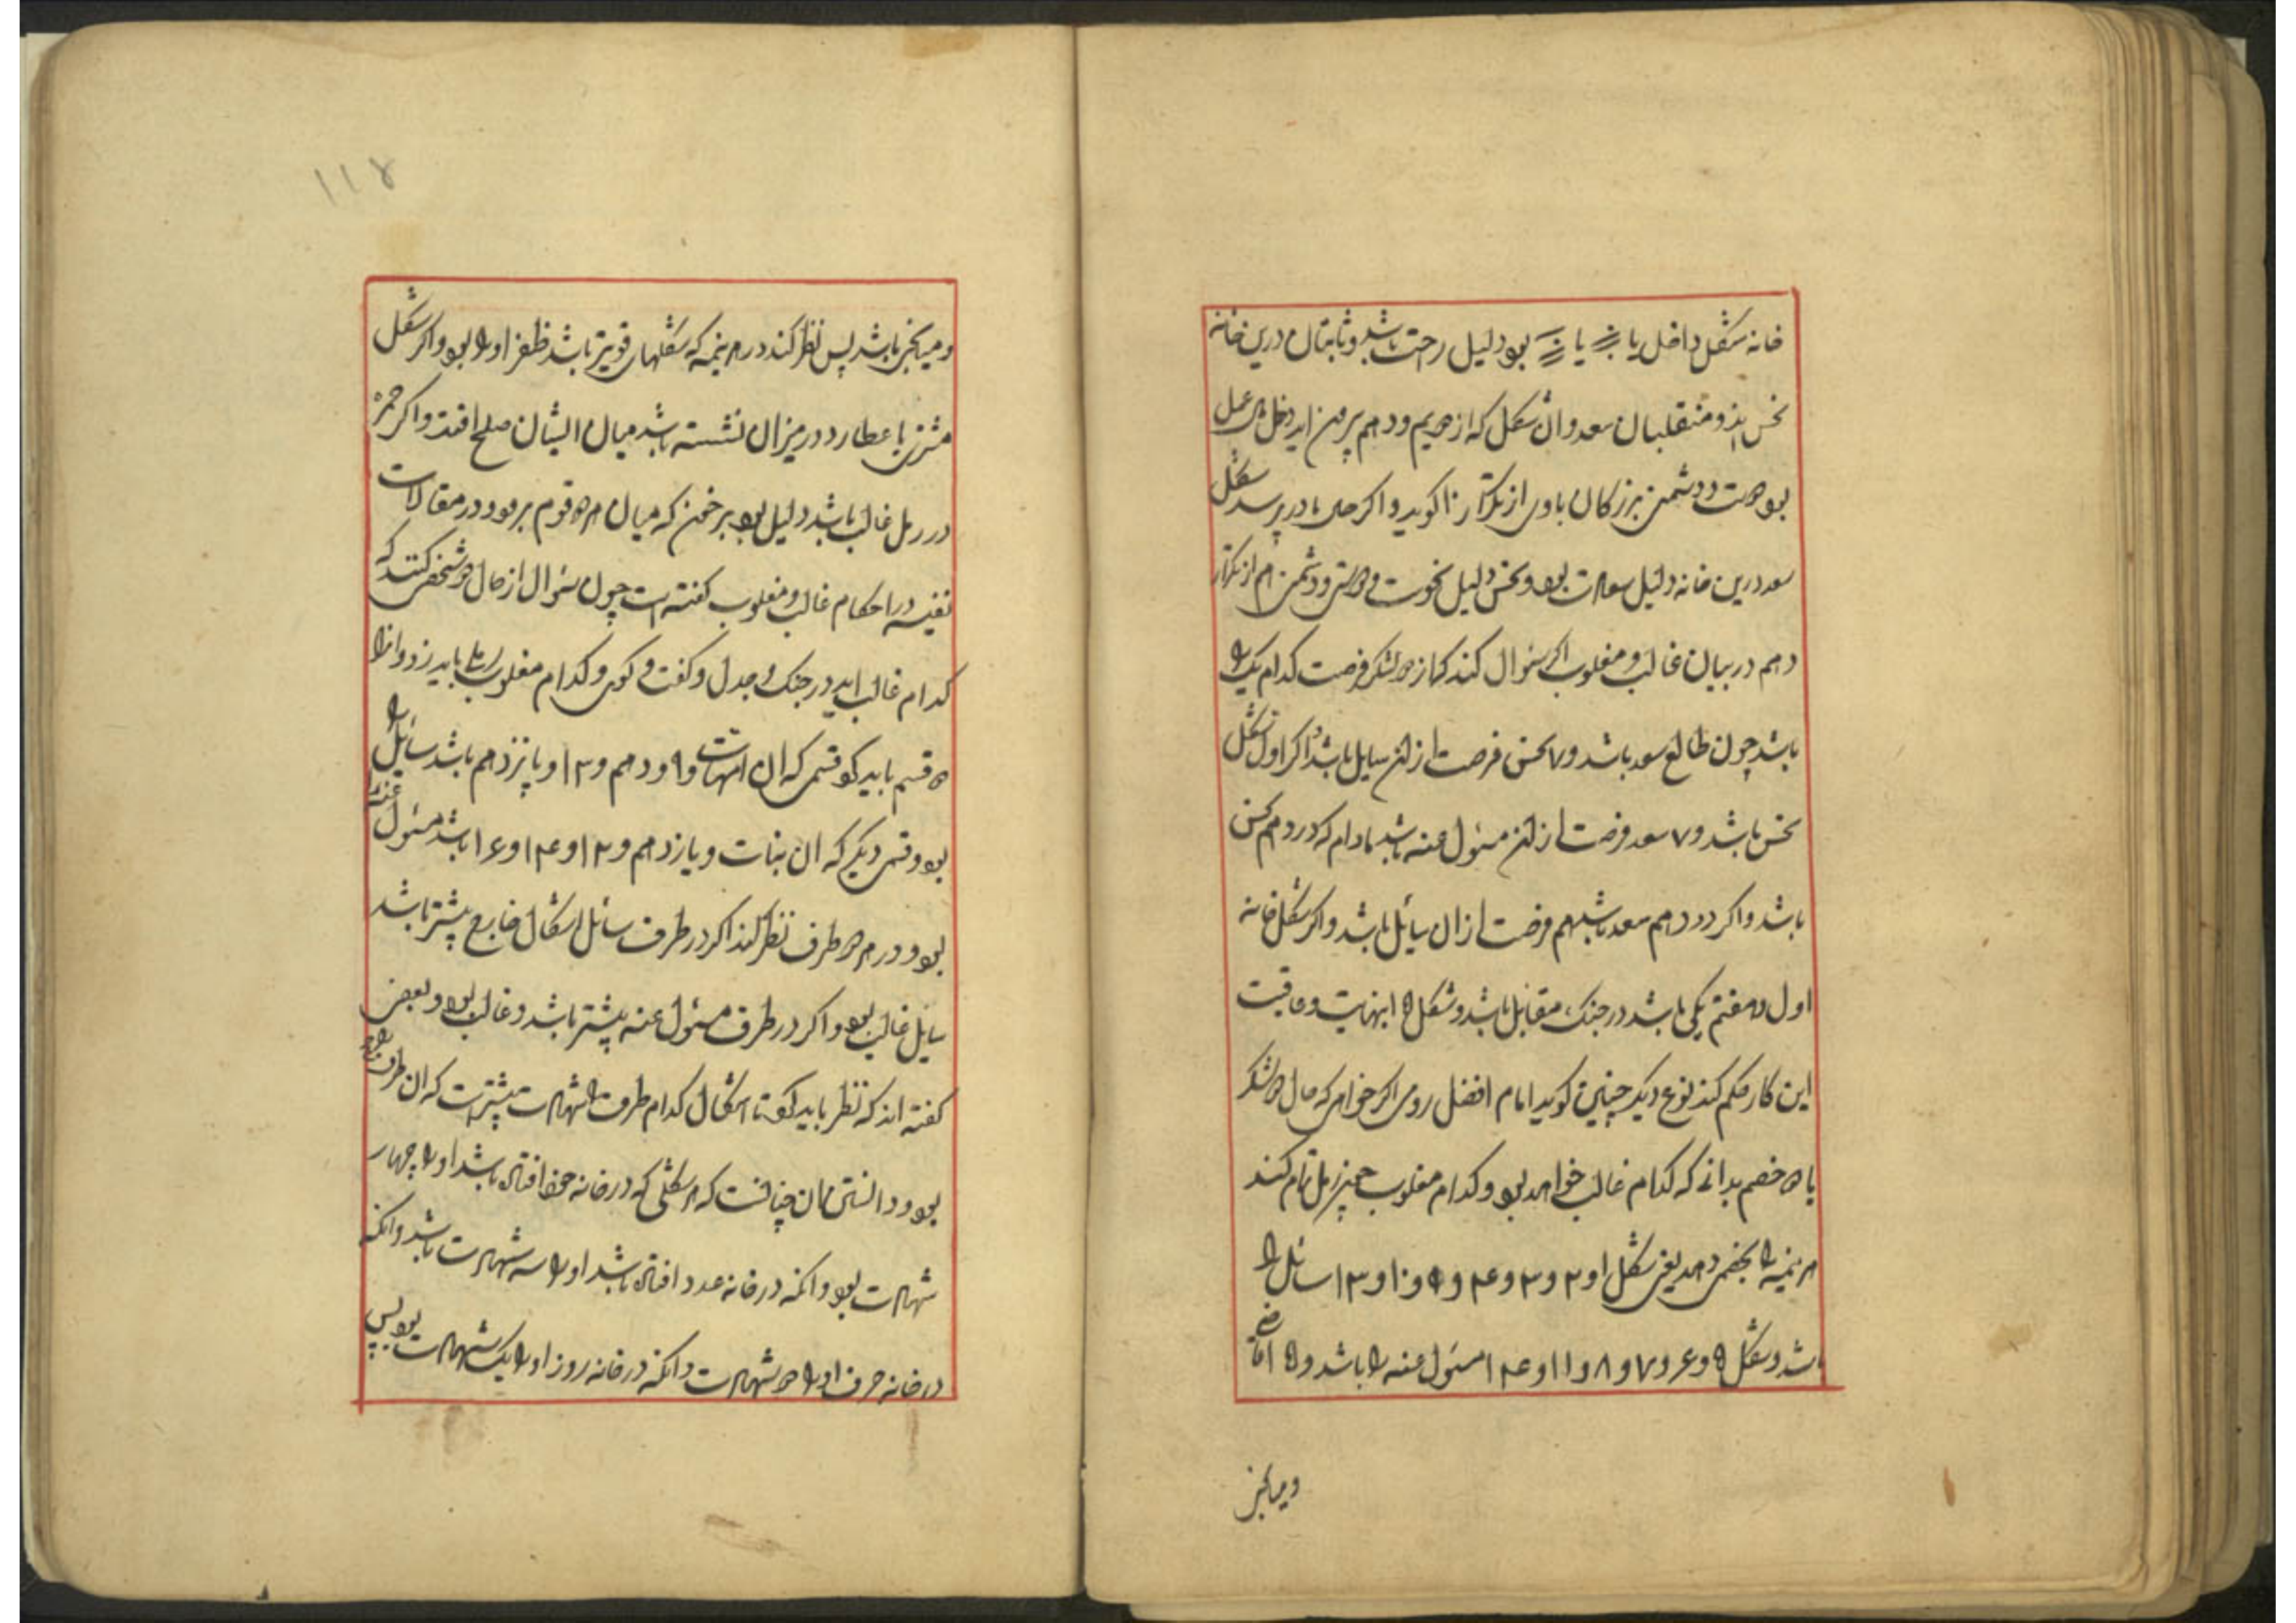 خانه شکل داخل یا یا بود دلیل راحت باشد و ثابتان درین خانه
نحس اند و منقلبان سعد و ان شکل که از دویم و دهم بیرون اید دخل عمل
بود دوست و دشمن بزرکان باوی از تکرار ا کوید و اکر حال مادر پرسد شکل
سعد درین خانه دلیل سعادت بود و نحس دلیل نحوست و دوستی و دشمنی هم از تکرار
دهم در بیان غالب و مغلوب اکر سؤال کنند که از دو لشکر فرصت کدام یک را
باشد چون طالع سعد باشد و ۷ نحس فرصت از ان سایل باشد و اکر اول شکل
نحس باشد و ۷ سعد فرصت از ان مسئول عنه باشد مادام که در دهم نحس
باشد و اکر در دهم سعد باشد هم فرصت از ان سایل باشد و اکر شکل خانه
اول و هفتم یکی باشد در جنک مقابل باشد و شکل ۱۵ نهایت و عاقبت
این کار حکم کند نوع دیکر چنین کوید امام افضل رومی اکر خواهی که حال دو لشکر
یا دو خصم بدانی که کدام غالب خواهد بود و کدام مغلوب چون رمل تمام کند
هر نیمه را بخصمی دهد یعنی شکل ۱ و ۲ و ۳ و ۴ و ۹ و ۱۰ و ۱۳ سائل را
باشد و شکل ۵ و ۶ و ۷ و ۸ و ۱۱ و ۱۴ مسئول عنه را باشد و ۱۵ قاضی
ومیانجی
۱۱۷
ومیانجی باشد پس نظر کند در هر نیمه که شکلهای قویتر باشد ظفر او را بود و اکر شکل
مشتری با عطارد در میزان نشسته باشد میان ایشان صلح افتد و اکر حمره
در رمل غالب باشد دلیل بود بر خون که میان هر دو قوم برود و در مقالات
نفیسه در احکام غالب و مغلوب کفته است چون سؤال از حال دو شخص کنند که
کدام غالب اید در جنک و جدل و کفت و کوی و کدام مغلوب رملی باید زد و انرا
دو قسم باید کرد قسمی که ان امهات و ۹ و دهم و ۱۳ و پانزدهم باشد سائل را
بود و قسمی دیکر که ان بنات و یازدهم و ۱۲ و ۱۴ و ۱۶ باشد مسئول عنه را
بود و در هر دو طرف نظر کند اکر در طرف سائل اشکال خارج بیشتر باشد
سایل غالب بود و اکر در طرف مسئول عنه بیشتر باشد و غالب بود و بعضی
کفته اند که نظر باید کرد تا اشکال کدام طرف را شهادت بیشترست که ان طرف را
بود و دانستن ان چنانست که هر شکلی که در خانه خود افتاده باشد او را چهار
شهادت بود و انکه در خانه عدد افتاده باشد او را سه شهادت باشد و انکه
در خانه حرف او را دو شهادت و انکه در خانه روز او را یک شهادت بود پس